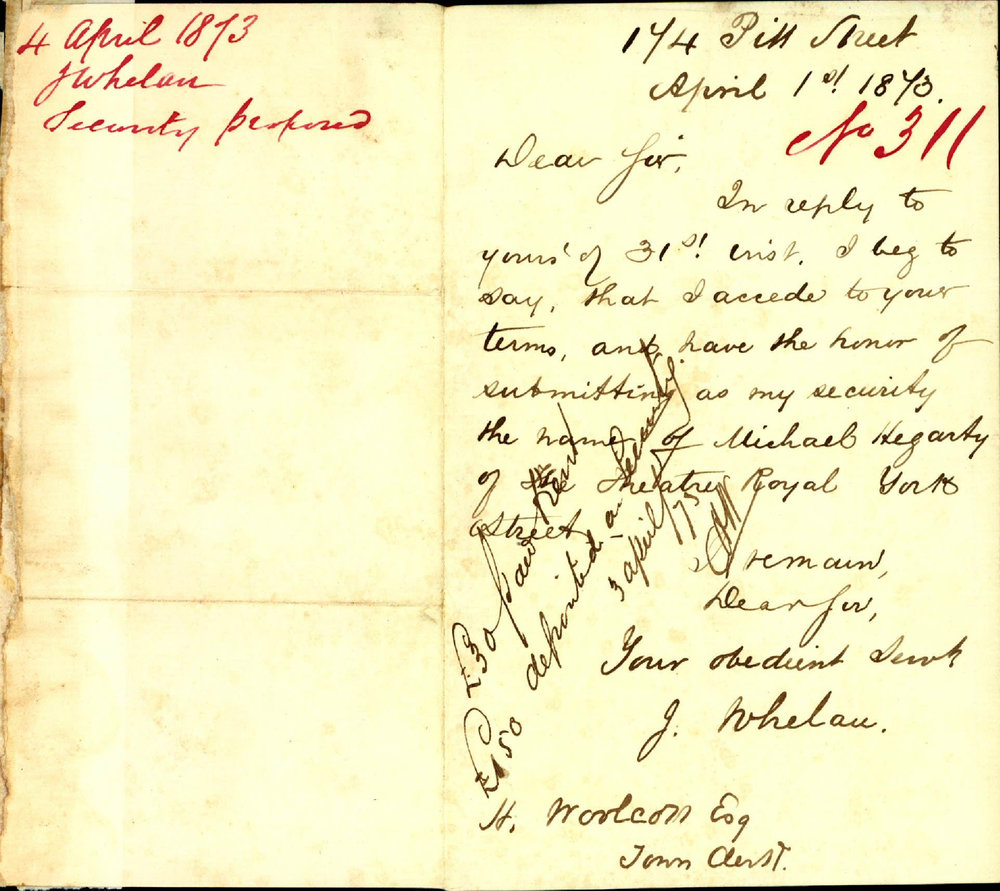 4 April 1873
J Whelan
Security proposed
174 Pitt Street
April 1st 1873.
No 311
Dear Sir,
In reply to
yours' of 31st inst. I beg to
say, that I accede to your
terms, and have the honor of
submitting as my security
the name of Michael Hegarty
of the Theatre Royal York
Street
I remain,
Dear Sir,
Your obedient Servt
J. Whelan.
H. Woolcott Esq
Town Clerk.
£30 paid Rent
£150 deposited as Security.
3 April